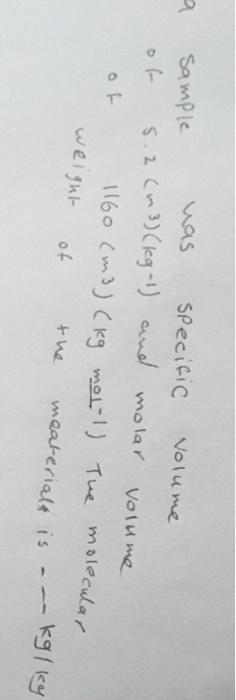 a sample has specific volume
of 5.2 (m3)(kg-1) and molar volume
of 1160 (m3) (kg mol-1) The molecular
weight of the meaterials is --- kg/kg